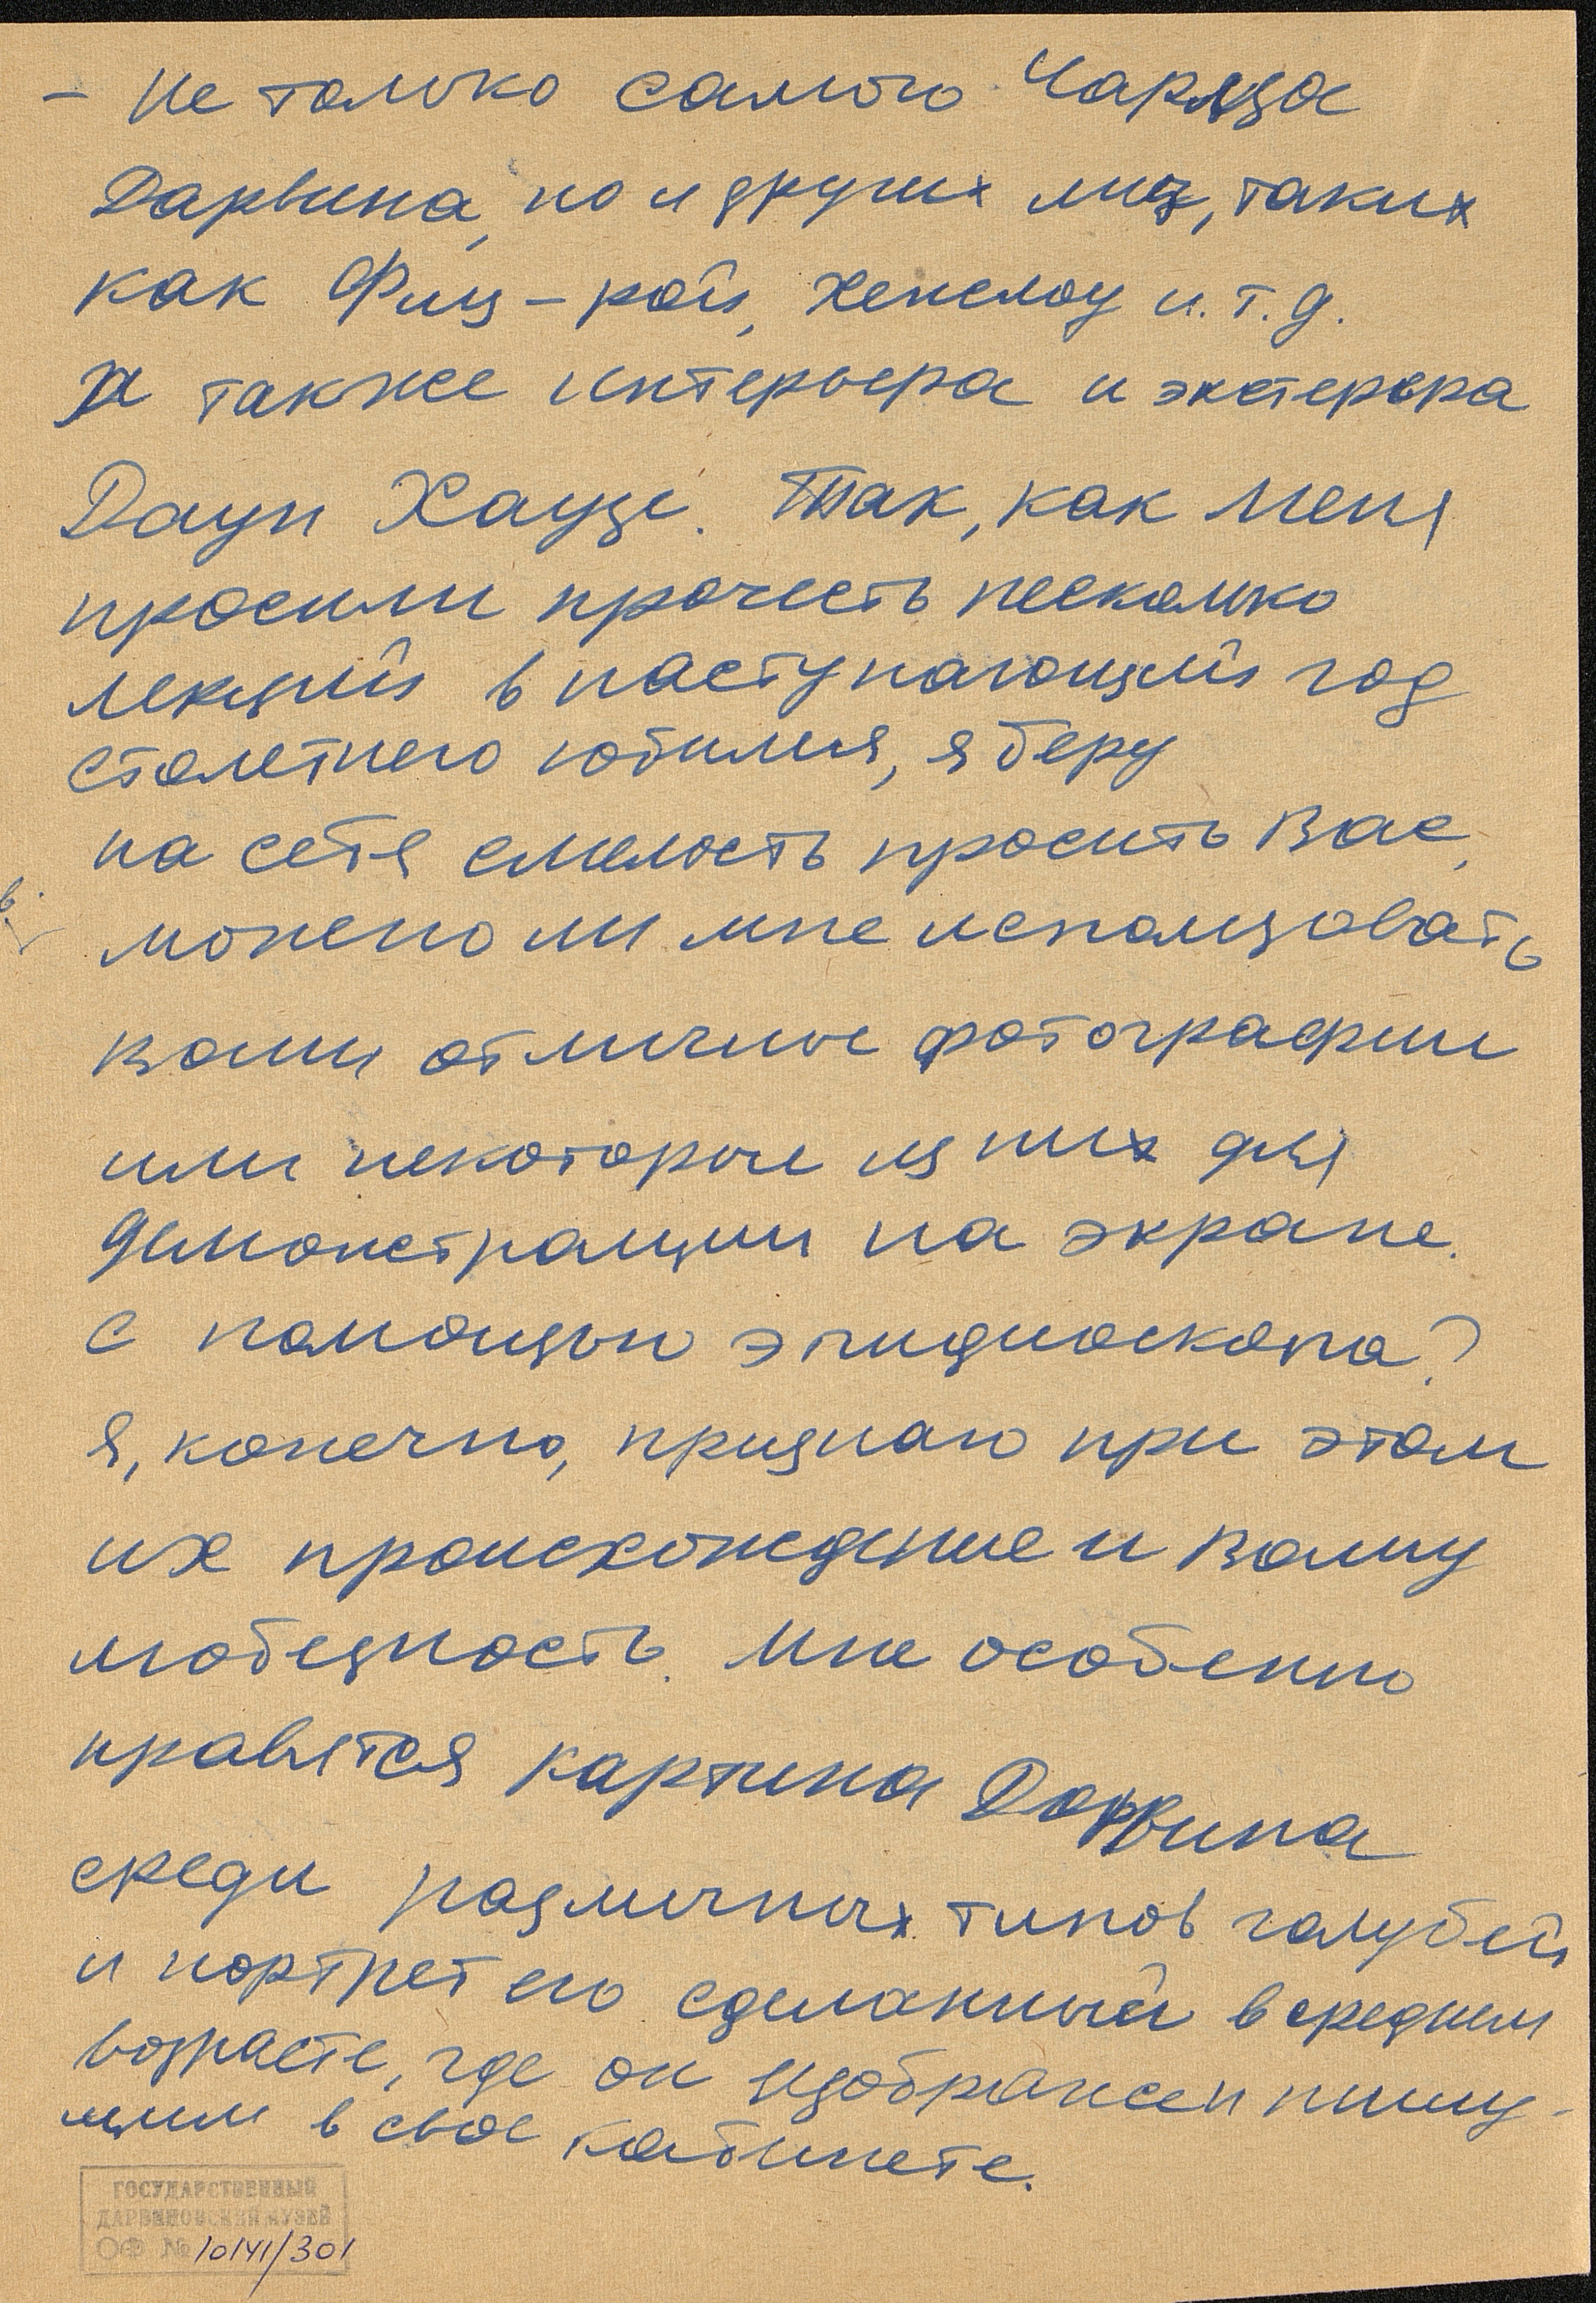 - Не только самого Чарлза
Дарвина, но и других лиц, таких
как Фиц-рой, Хенслоу и.т.д.
а также интерьера и экстерьера
Даун Хаузе. Так, как меня
просили прочесть несколько
лекций в наступающий год
столетнего юбилея, я беру
на себя смелость просить Вас,
можно ли мне использовать
ваши отличные фотографии
или некоторые из них для
демонстрации на экране.
с помощью эпидиоскопа?
Я, конечно, признаю при этом
их происхождение и вашу
любезность. Мне особенно
нравятся картина Дарвина
среди различных типов голубей
и портрет его сделанный в среднем
возрасте, где он изображен пишу-
щим в свое кабинете.
ГОСУДАРСТВЕННЫЙ
ДАРВИНОВСКИЙ МУЗЕЙ
ОФ № 10141/301